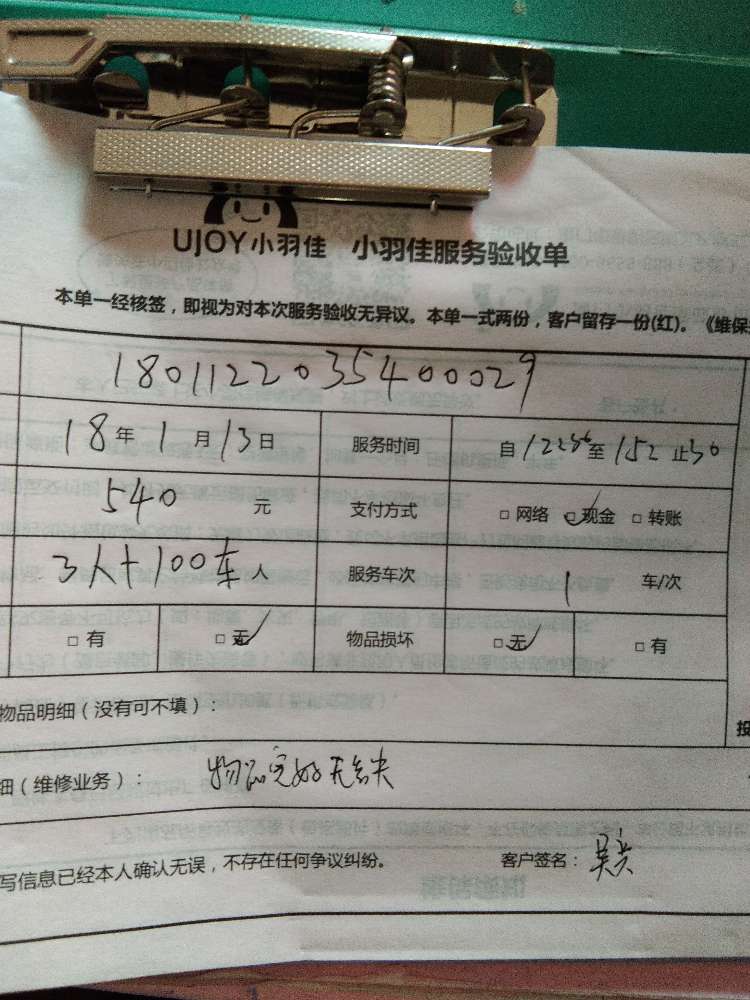 UJOY小羽佳 小羽佳服务验收单
本单一经核签，即视为对本次服务验收无异议。本单一式两份，客户留存一份(红)。《维保
1801122035400029
18年1月13日 服务时间 自1230至152止30
540 元 支付方式 □网络 ☑现金 □转账
3人+100车 人 服务车次 1 车/次
□有 ☑无 物品损坏 ☑无 □有
物品明细（没有可不填）：
细（维修业务）： 物品完好无缺
写信息已经本人确认无误，不存在任何争议纠纷。 客户签名：